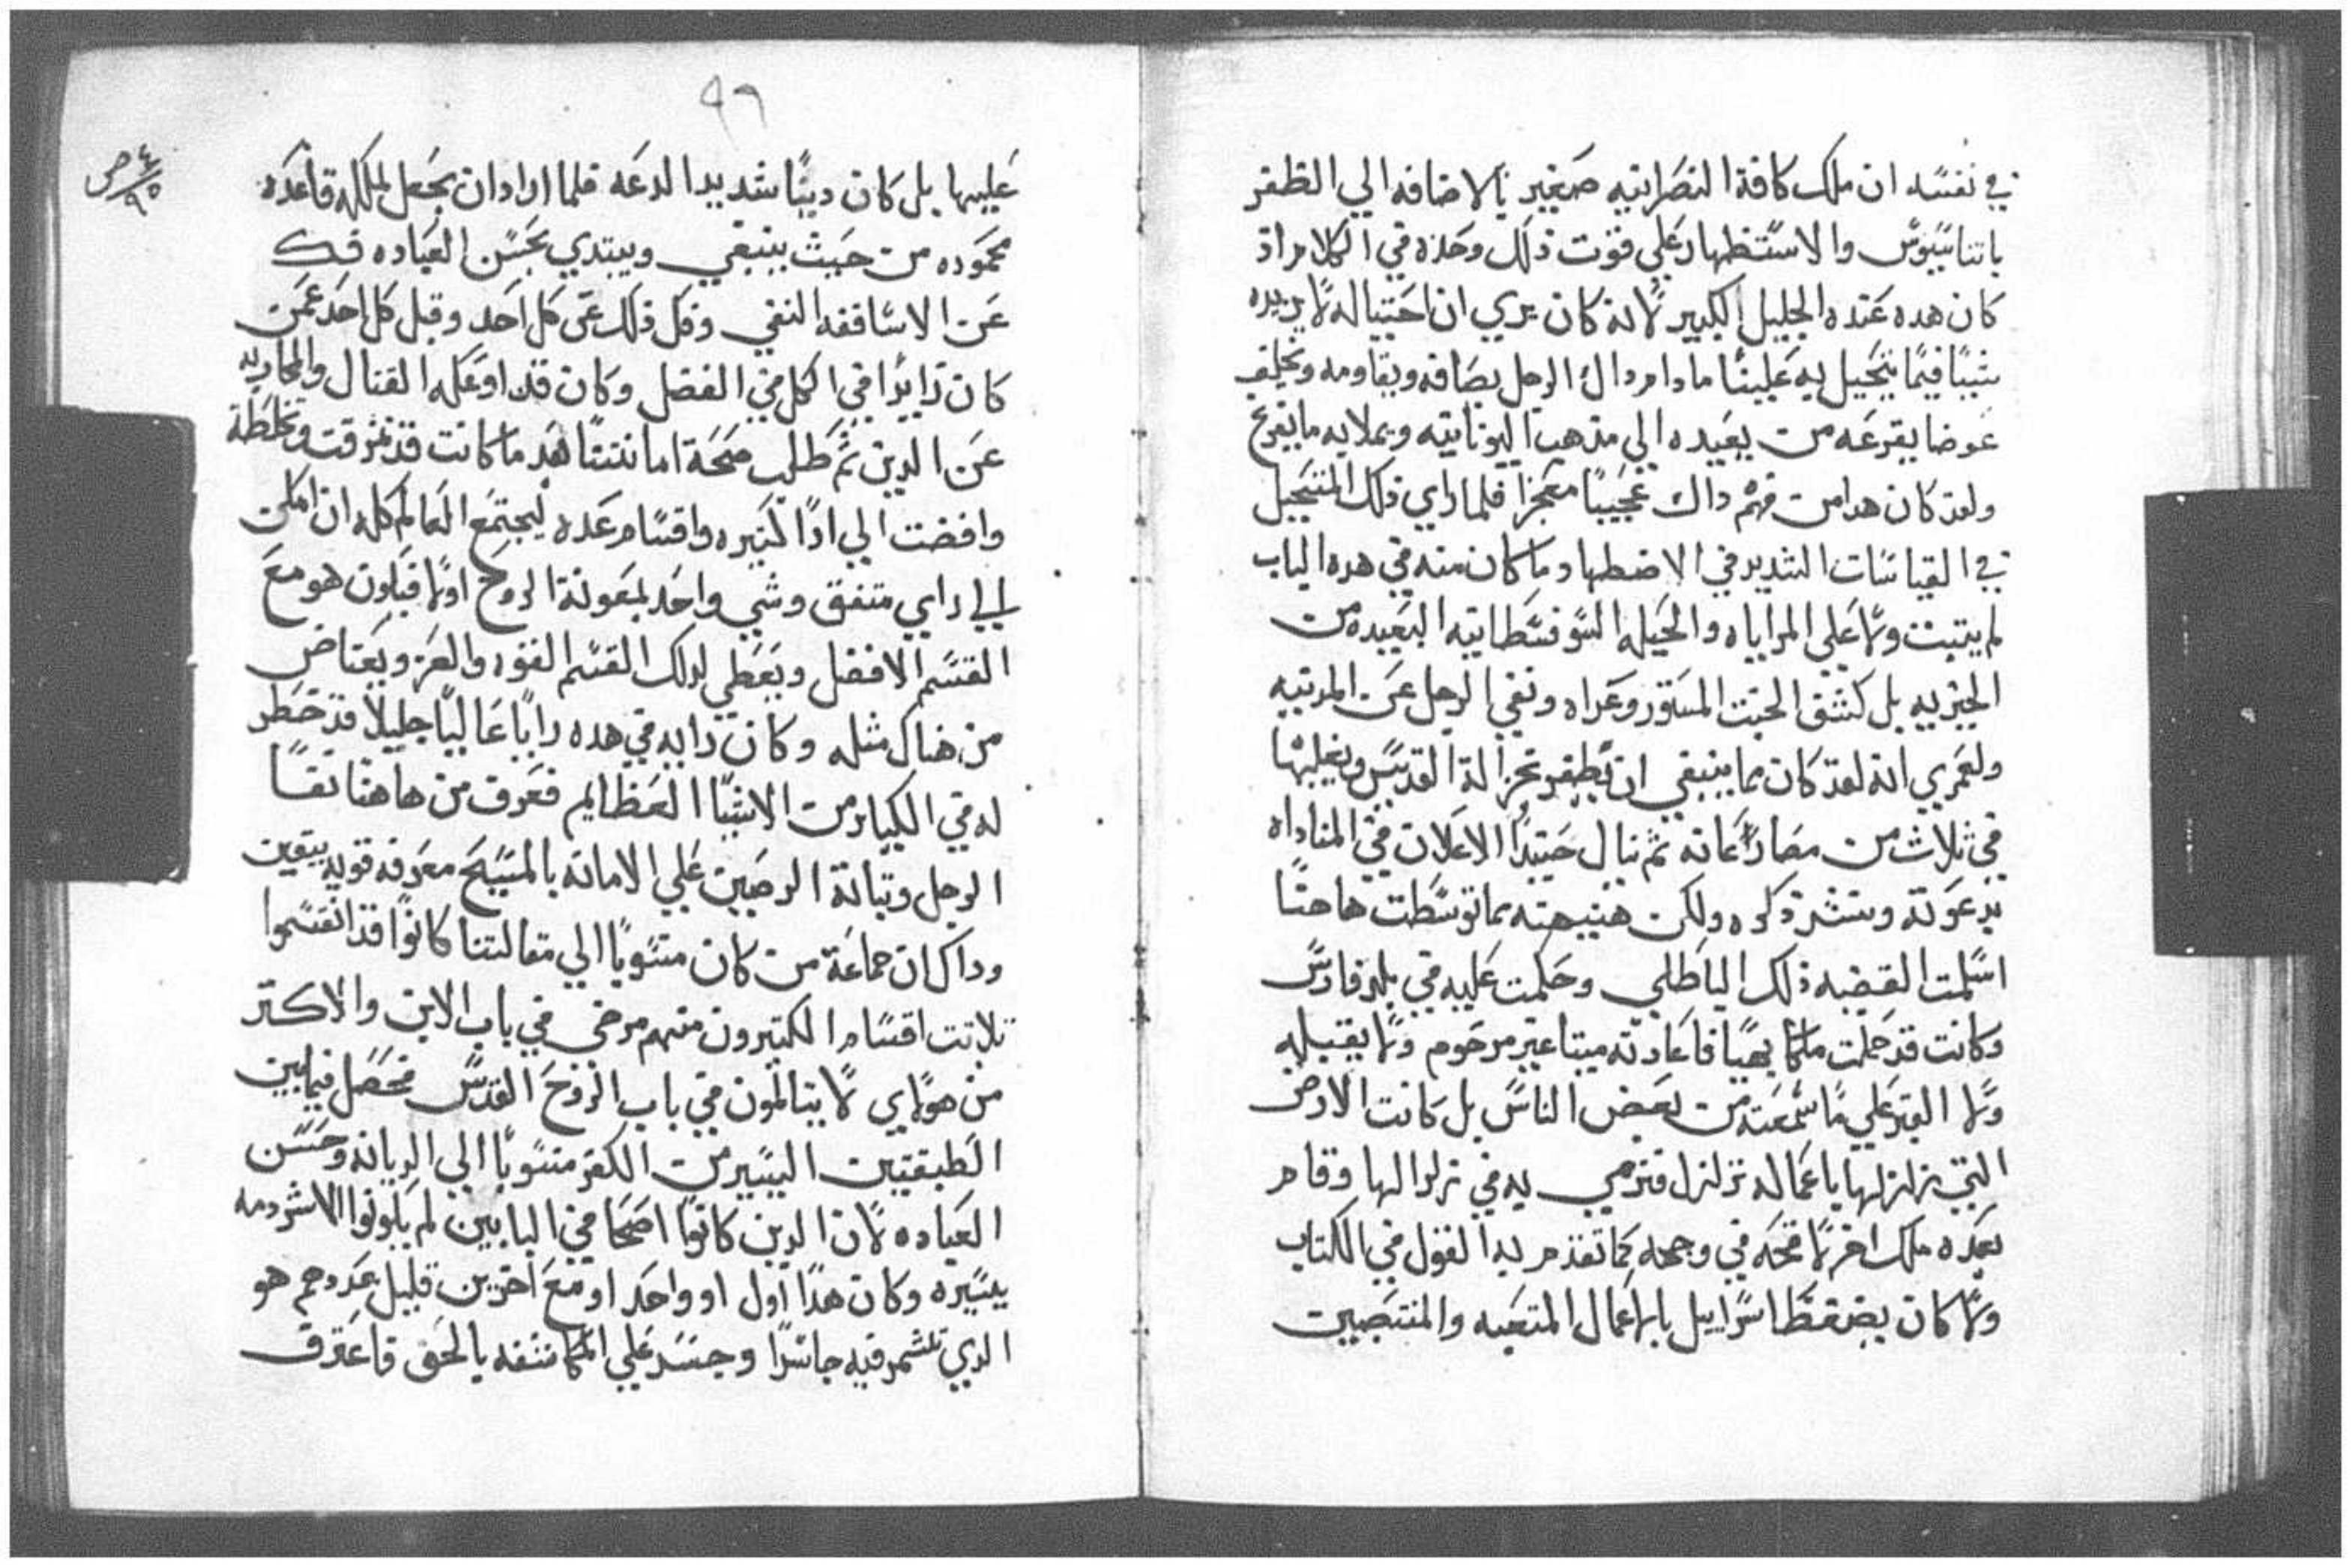 في نفسه ان ملك كافة النصرانيه صغير بالاضافه الي الظفر
باتناسيوس والاستظهار علي فقوت ذلك وحده في الكلام اذ
كان هده عنده الجليل الكبير لانه كان يري ان احتياله لا يزيده
شيا فيما يتحيل به علينا مادام داك الرجل يصافه ويقاومه ويخلف
عوضا يقرعه من يعيده الي مذهب اليونانيه ويملا به ما يفرغ
ولقد كان هدا من فهم داك عجيبا معجزا فلما راي ذلك المتحيل
في القياسات الشديد في الاضطهاد وما كان منه في هده الباب
لم يتبت ولا علي المراياه والحيله السوفسطانيه البعيده من
الحيريه بل كشف الخبت المستور وعراه ونفي الرجل عن المدينه
ولعمري انه لقد كان مما ينبغي ان تظفر جزالة القديس ويغلبها
في ثلاث من مصارعاته ثم ينال حينيدا الاعلان في المناداه
بدعوته وستشر ذكره ولكن هنيهته بما توسطت هاهنا
اسلمت القضيه ذلك الباطلي وحكمت عليه في بلد فارس
وكانت قد حملت ملكا بهيا فاعادته ميتا غير مرحوم ولا يقبله
ولا القبر علي ما سمعته من بعض الناس بل كانت الارض
التي زلزلها باعماله تزلزل فترمي به في زلزالها وقام
بعده ملك اخر لا قحه في وجهه كما تقدم به القول في الكتاب
ولا كان يضغط اسراييل بالاعمال المتعبه والمنتصبين
٩٦
٤ ص
٩٥
عليها بل كان دينا شديد الدعه فلما اراد ان يجعل لملكه قاعده
محموده من حيث ينبغي ويبتدي بحسن العباده فك
عن الاساقفه النفي وفك ذلك عن كل احد وقبل كل احد عمن
كان زايدا في الكل في الفضل وكان قد اوعكه القتال والمحاربه
عن الدين ثم طلب صحة امانتنا هده ما كانت قد تمزقت وتخلطة
وافضت الي ادا كتيره واقسام عده ليجتمع العالم كله ان امكن
الي راي متفق وشي واحد بمعونة الروح اولا فيكون هو مع
القسم الافضل ويعطي لدلك القسم القوه والعز ويعتاض
من هناك مثله وكان رايه في هده رايا عاليا جليلا قد خطر
له في الكباير من الاشيا العظايم فعرف من هاهنا نقا
الرجل وتباتة الرصين علي الامانه بالمسيح معرفه قويه بيقين
وداك ان جماعة من كان منسوبا الي مقالتنا كانوا قد انقسموا
تلاتت اقسام الكتيرون منهم مرضي في باب الابن والاكتر
من هولاي لا يتالمون في باب الروح القدس فحصل فيما بين
الطبقتين اليسير من الكفر منسوبا الي الديانه وحسن
العباده لان الدين كانوا اصحا في البابين لم يكونوا الا شردمه
يسيره وكان هدا اول او واحد او مع اخرين قليل عددهم هو
الدي تشمر فيه جاسرا وجسر علي المكاشفه بالحق فاعترف